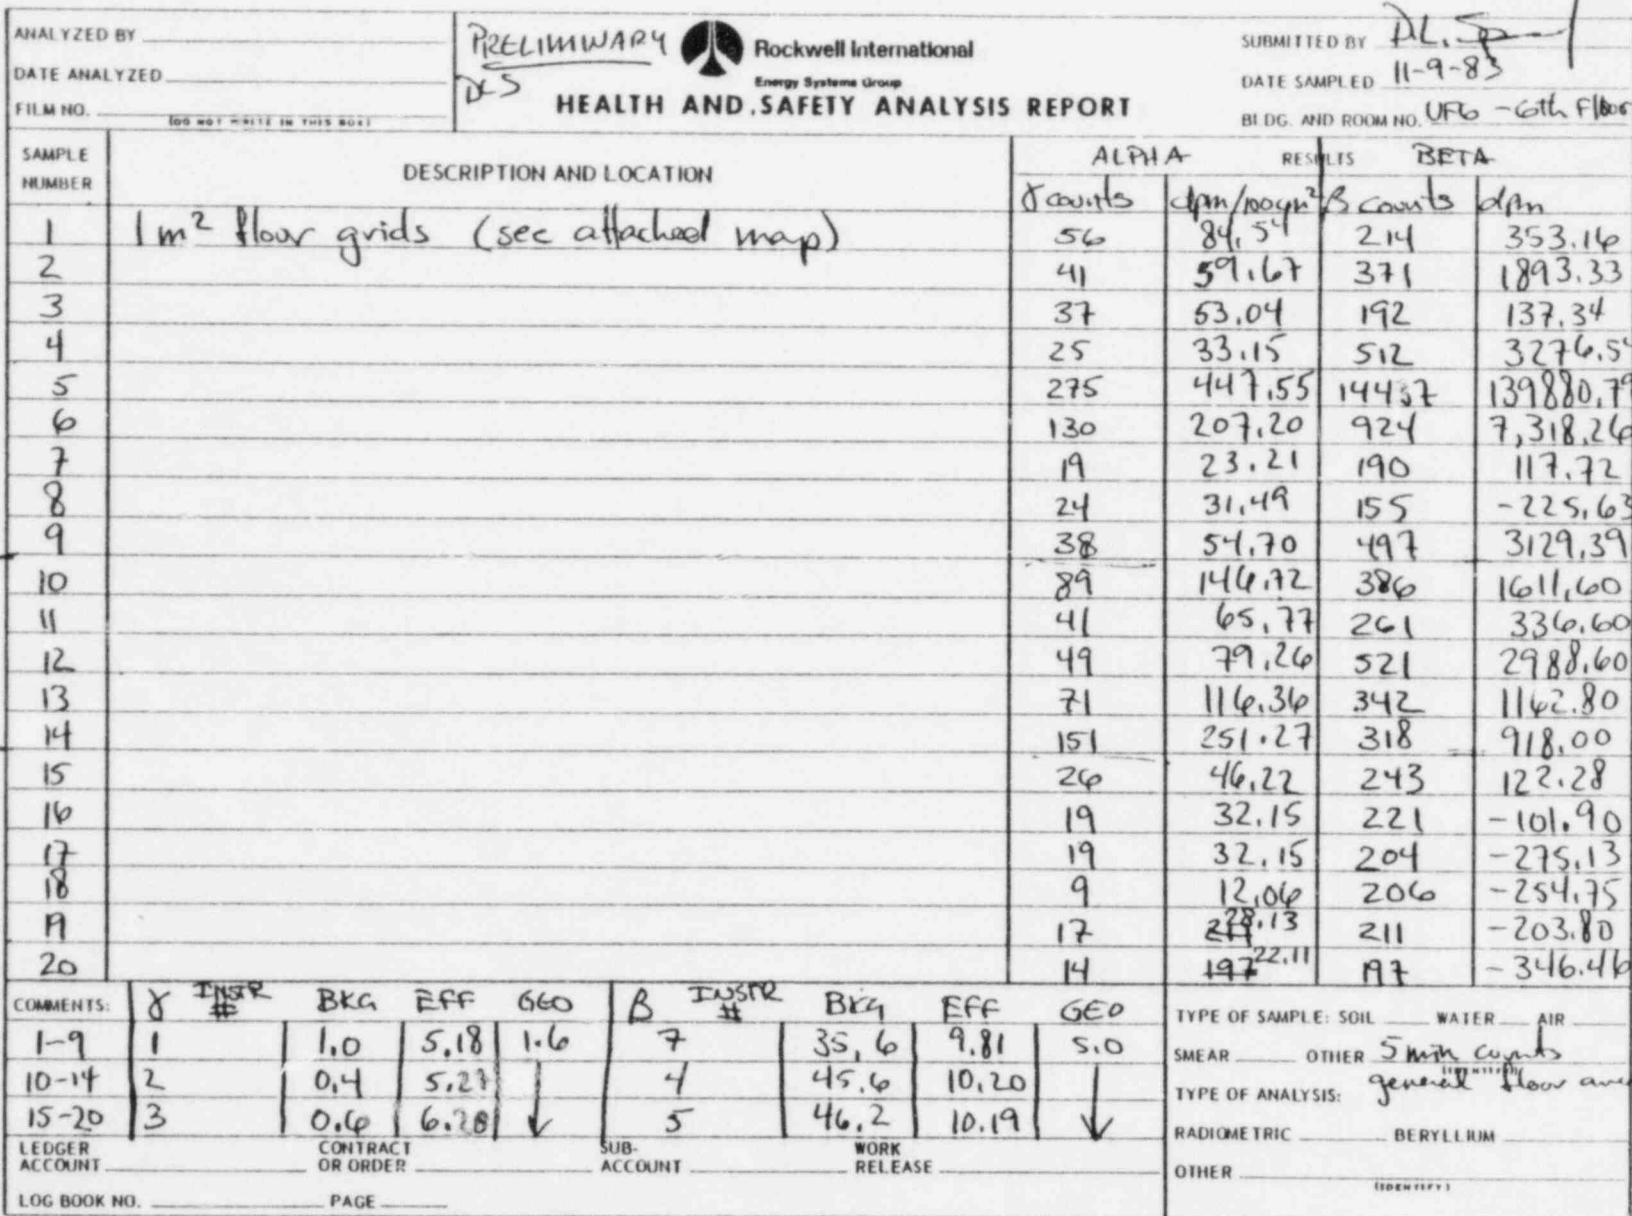 ANALYZED BY
DATE ANALYZED
FILM NO.
(DO NOT WRITE IN THIS BOX)
PRELIMINARY
DLS
Rockwell International
Energy Systems Group
HEALTH AND SAFETY ANALYSIS REPORT
SUBMITTED BY D.L.
DATE SAMPLED 11-9-83
BLDG. AND ROOM NO. UF6 - 6th Floor
SAMPLE NUMBER DESCRIPTION AND LOCATION ALPHA RESULTS BETA
γ counts dpm/100cm² β counts dpm
1 1m² floor grids (see attached map) 56 84.54 214 353.16
2 41 59.67 371 1893.33
3 37 53.04 192 137.34
4 25 33.15 512 3276.54
5 275 447.55 14437 139880.79
6 130 207.20 924 7,318.26
7 19 23.21 190 117.72
8 24 31.49 155 -225.63
9 38 54.70 497 3129.39
10 89 146.72 386 1611.60
11 41 65.77 261 336.60
12 49 79.26 521 2988.60
13 71 116.36 342 1162.80
14 151 251.27 318 918.00
15 26 46.22 243 122.28
16 19 32.15 221 -101.90
17 19 32.15 204 -275.13
18 9 12.06 206 -254.75
19 17 28.13 211 -203.80
20 14 197 22.11 197 -346.46
COMMENTS: γ INSTR # BKG EFF GEO β INSTR # BKG EFF GEO
1-9 1 1.0 5.18 1.6 7 35.6 9.81 5.0
10-14 2 0.4 5.27 4 45.6 10.20
15-20 3 0.6 6.28 5 46.2 10.19
TYPE OF SAMPLE: SOIL WATER AIR
SMEAR OTHER 5 min counts
(IDENTIFY)
TYPE OF ANALYSIS: general floor area
RADIOMETRIC BERYLLIUM
OTHER
(IDENTIFY)
LEDGER ACCOUNT CONTRACT OR ORDER SUB-ACCOUNT WORK RELEASE
LOG BOOK NO. PAGE